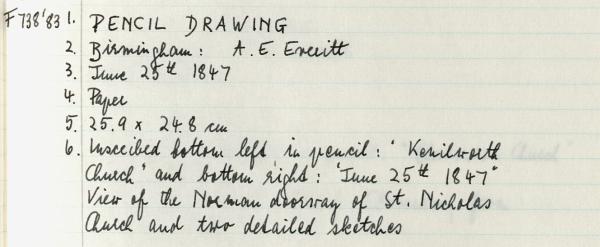 F738'83 1. PENCIL DRAWING
2. Birmingham: A. E. Everitt
3. June 25th 1847
4. Paper
5. 25.9 x 24.8 cm
6. Inscribed bottom left in pencil: 'Kenilworth
Church' and bottom right: 'June 25th 1847'
View of the Norman doorway of St. Nicholas
Church and two detailed sketches